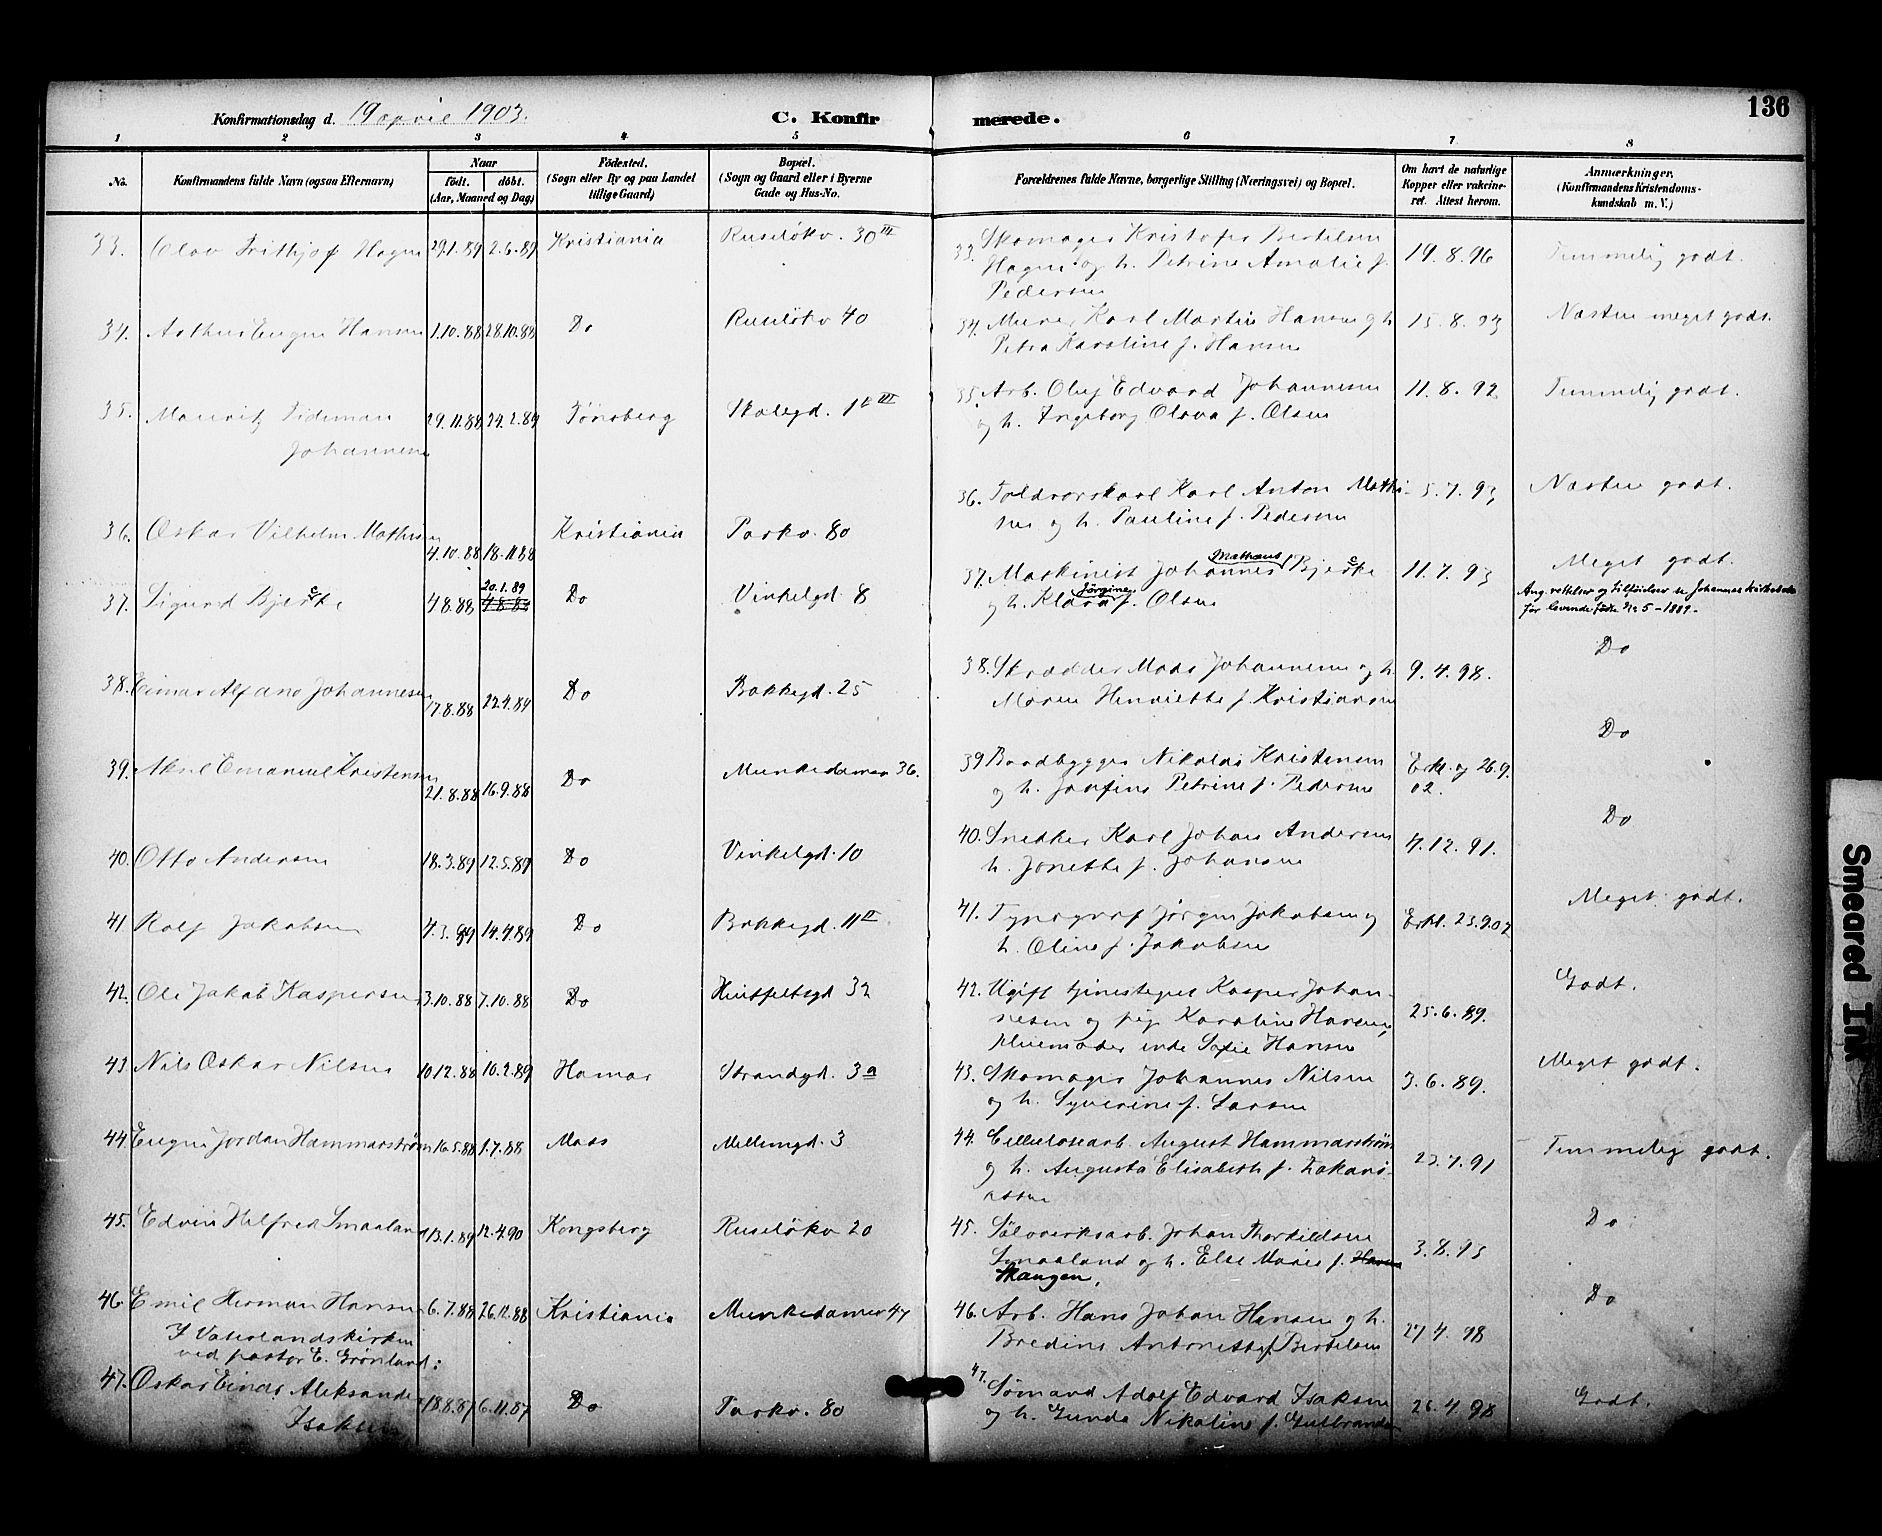 136
Konfirmationsdag d. 19 april 1903.
C. Konfirmerede.
1 2 3 4 5 6 7 8
No.
Konfirmandens fulde Navn (ogsaa Efternavn)
Naar
født. døbt.
(Aar, Maaned og Dag)
Fødested.
(Sogn eller By og paa Landet
tillige Gaard)
Bopæl.
(Sogn og Gaard eller i Byerne
Gade og Hus-No.
Forældrenes fulde Navne, borgerlige Stilling (Næringsvei) og Bopæl.
Om havt de naturlige
Kopper eller vakcine-
ret. Attest herom.
Anmærkninger.
(Konfirmandens Kristendoms-
kundskab m. V.)
33. Olav Frithjof Hagen 29.1.89 2.6.89 Kristiania Ruseløkv. 30 III
33. Skomager Kristofer Bertelsen
Hagen og h. Petrine Amalie f.
Pedersen
19.8.96 Temmelig godt.
34. Arthur Eugen Hansen 1.10.88 28.10.88 Do Ruseløkv 40
34. Murer Karl Martin Hansen og h
Petra Karoline f. Hansen
15.8.93 Næsten meget godt.
35. Mauritz Tideman
Johannesen
29.11.88 24.2.89 Tönsberg Skolegd. III
35. Arb. Oluf Edvard Johannesen
og h. Ingeborg Olava f. Olsen
11.8.92 Temmelig godt.
36. Oskar Vilhelm Mathisen 4.10.88 18.11.88 Kristiania Parkv. 80
36. Toldrorskarl Karl Anton Mathi-
sen og h. Pauline f. Pedersen
5.7.93 Næsten godt.
37. Sigurd Bjerke 4.8.88 20.1.89 Do Vinkelgd. 8
37. Maskinist Johannes Mathæus Bjerke
og h. Klara Jørgine f. Olsen
11.7.93 Meget godt.
Ang. rettelser og tilføielser se Johannes kirkebok
for levende fødte No 5 - 1889.
38. Einar Alfano Johannesen 17.8.88 22.4.89 Do Bakkegd. 25
38. Skrædder Mads Johannesen og h.
Maren Henriette f. Kristiansen
9.4.98. Do
39. Aksel Emanuel Kristensen 21.8.88 16.9.88 Do Munkedamsv 36.
39 Baadbygger Nikolai Kristensen
og h. Josefine Petrine f. Pedersen
Erkl. og 26.9.
02.
Do
40. Otto Andersen 18.3.89 12.5.89 Do Vinkelgd. 10
40. Snedker Karl Johan Andersen
h. Jonette f. Johansen
4.12.91. Do
41 Rolf Jakobsen 4.3.89 14.4.89 Do Bakkegd. 11 II
41. Typograf Jørgen Jakobsen og
h. Oline f. Jakobsen
Erkl. 23.9.02 Meget godt.
42. Ole Jakob Kaspersen 3.10.88 7.10.88 Do Huitfeldtsgd 32
42. Ugift tjenestegut Kasper Johan-
nesen og pige Karoline Hansen,
pleiemoder enke Sofie Hansen
25.6.89. Godt.
43 Nils Oskar Nilsen 10.12.88 10.2.89 Hamar Strandgd. 3 a
43. Skomager Johannes Nilsen
og h. Syverine f. Larsen
3.6.89. Meget godt.
44 Eugen Jordan Hammarstrøm 16.5.88 1.7.88 Moss Mellemgd. 3
44. Cellulosearb. August Hammarstrøm
og h. Augusta Elisabeth f. Zakari-
assen
23.7.91 Temmelig godt.
45. Edvin Hilfred Smaaland 13.1.89 12.4.90 Kongsberg Ruseløkv 20
45. Sølvverksarb. Johan Thorkildsen
Smaaland og h. Else Marie f. Hansen
Skaugen,
3.8.93 Do
46. Emil Herman Hansen 6.7.88 26.12.88 Kristiania Munkedamsv 47
46. Arb. Hans Johan Hansen og h.
Bredine Antonette f. Bertelsen
27.4.98 Do
I Vaterlandskirken
ved pastor E. Grönland:
47. Oskar Einar Aleksander
Isaksen
18.8.87 6.11.87 Do Parkv. 80
47. Sømand Adolf Edvard Isaksen
og h. Gunda Nikoline f. Gulbrandsen
26.4.98 Godt.
Smeared Ink